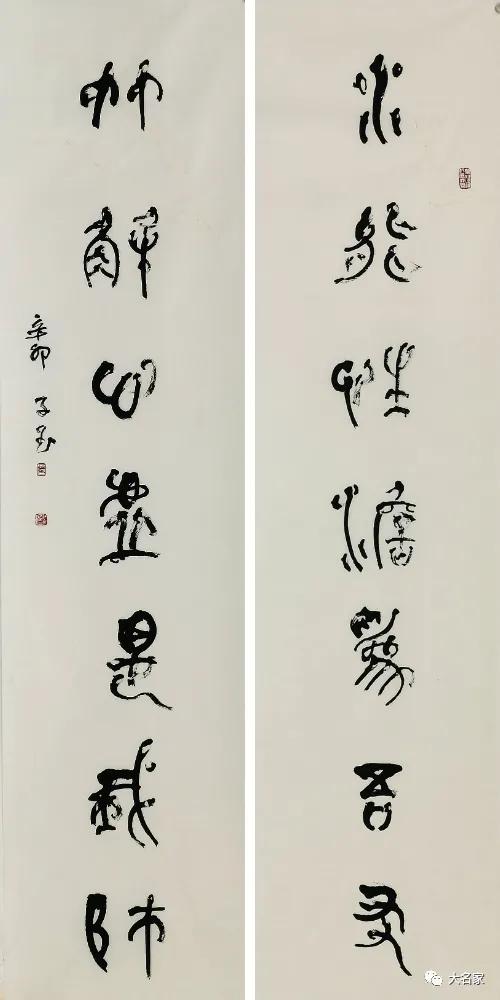 水能性澹為吾友
竹解心虛是我師
辛卯 子玉
大名家